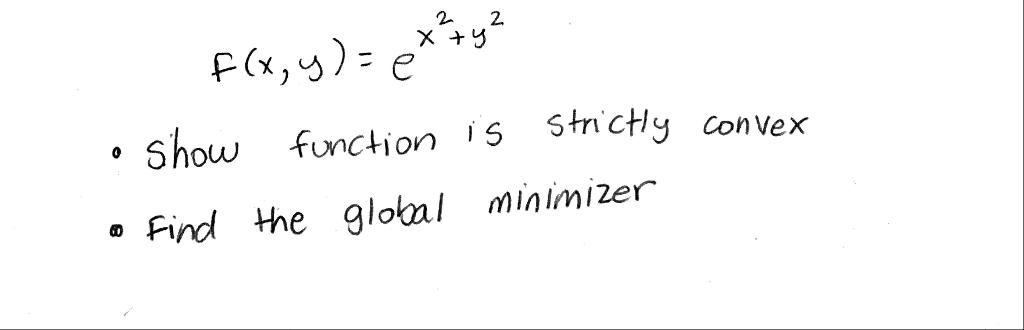 F(x, y) = e^{x^2+y^2}
• Show function is strictly convex
• Find the global minimizer